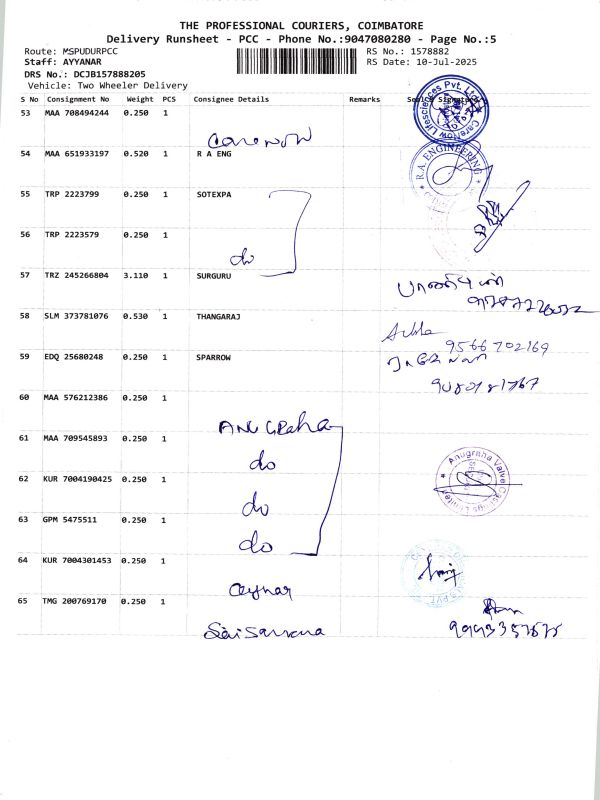 THE PROFESSIONAL COURIERS, COIMBATORE
Delivery Runsheet - PCC - Phone No.:9047080280 - Page No.:5
Route: MSPUDURPCC RS No.: 1578882
Staff: AYYANAR RS Date: 10-Jul-2025
DRS No.: DCJB157888205
Vehicle: Two Wheeler Delivery
S No Consignment No Weight PCS Consignee Details Remarks Seal & Signature
53 MAA 708494244 0.250 1
CareNow
CareNow Lifesciences Pvt. Ltd.
54 MAA 651933197 0.520 1 R A ENG
R.A. ENGINEERING
55 TRP 2223799 0.250 1 SOTEXPA
56 TRP 2223579 0.250 1
do
57 TRZ 245266804 3.110 1 SURGURU
58 SLM 373781076 0.530 1 THANGARAJ
9566702169
59 EDQ 25680248 0.250 1 SPARROW
60 MAA 576212386 0.250 1
ANUGRaha
61 MAA 709545893 0.250 1
do
Anugraha Valve Castings Limited
62 KUR 7004190425 0.250 1
do
63 GPM 5475511 0.250 1
do
64 KUR 7004301453 0.250 1
65 TMG 200769170 0.250 1
Sai Sarvana